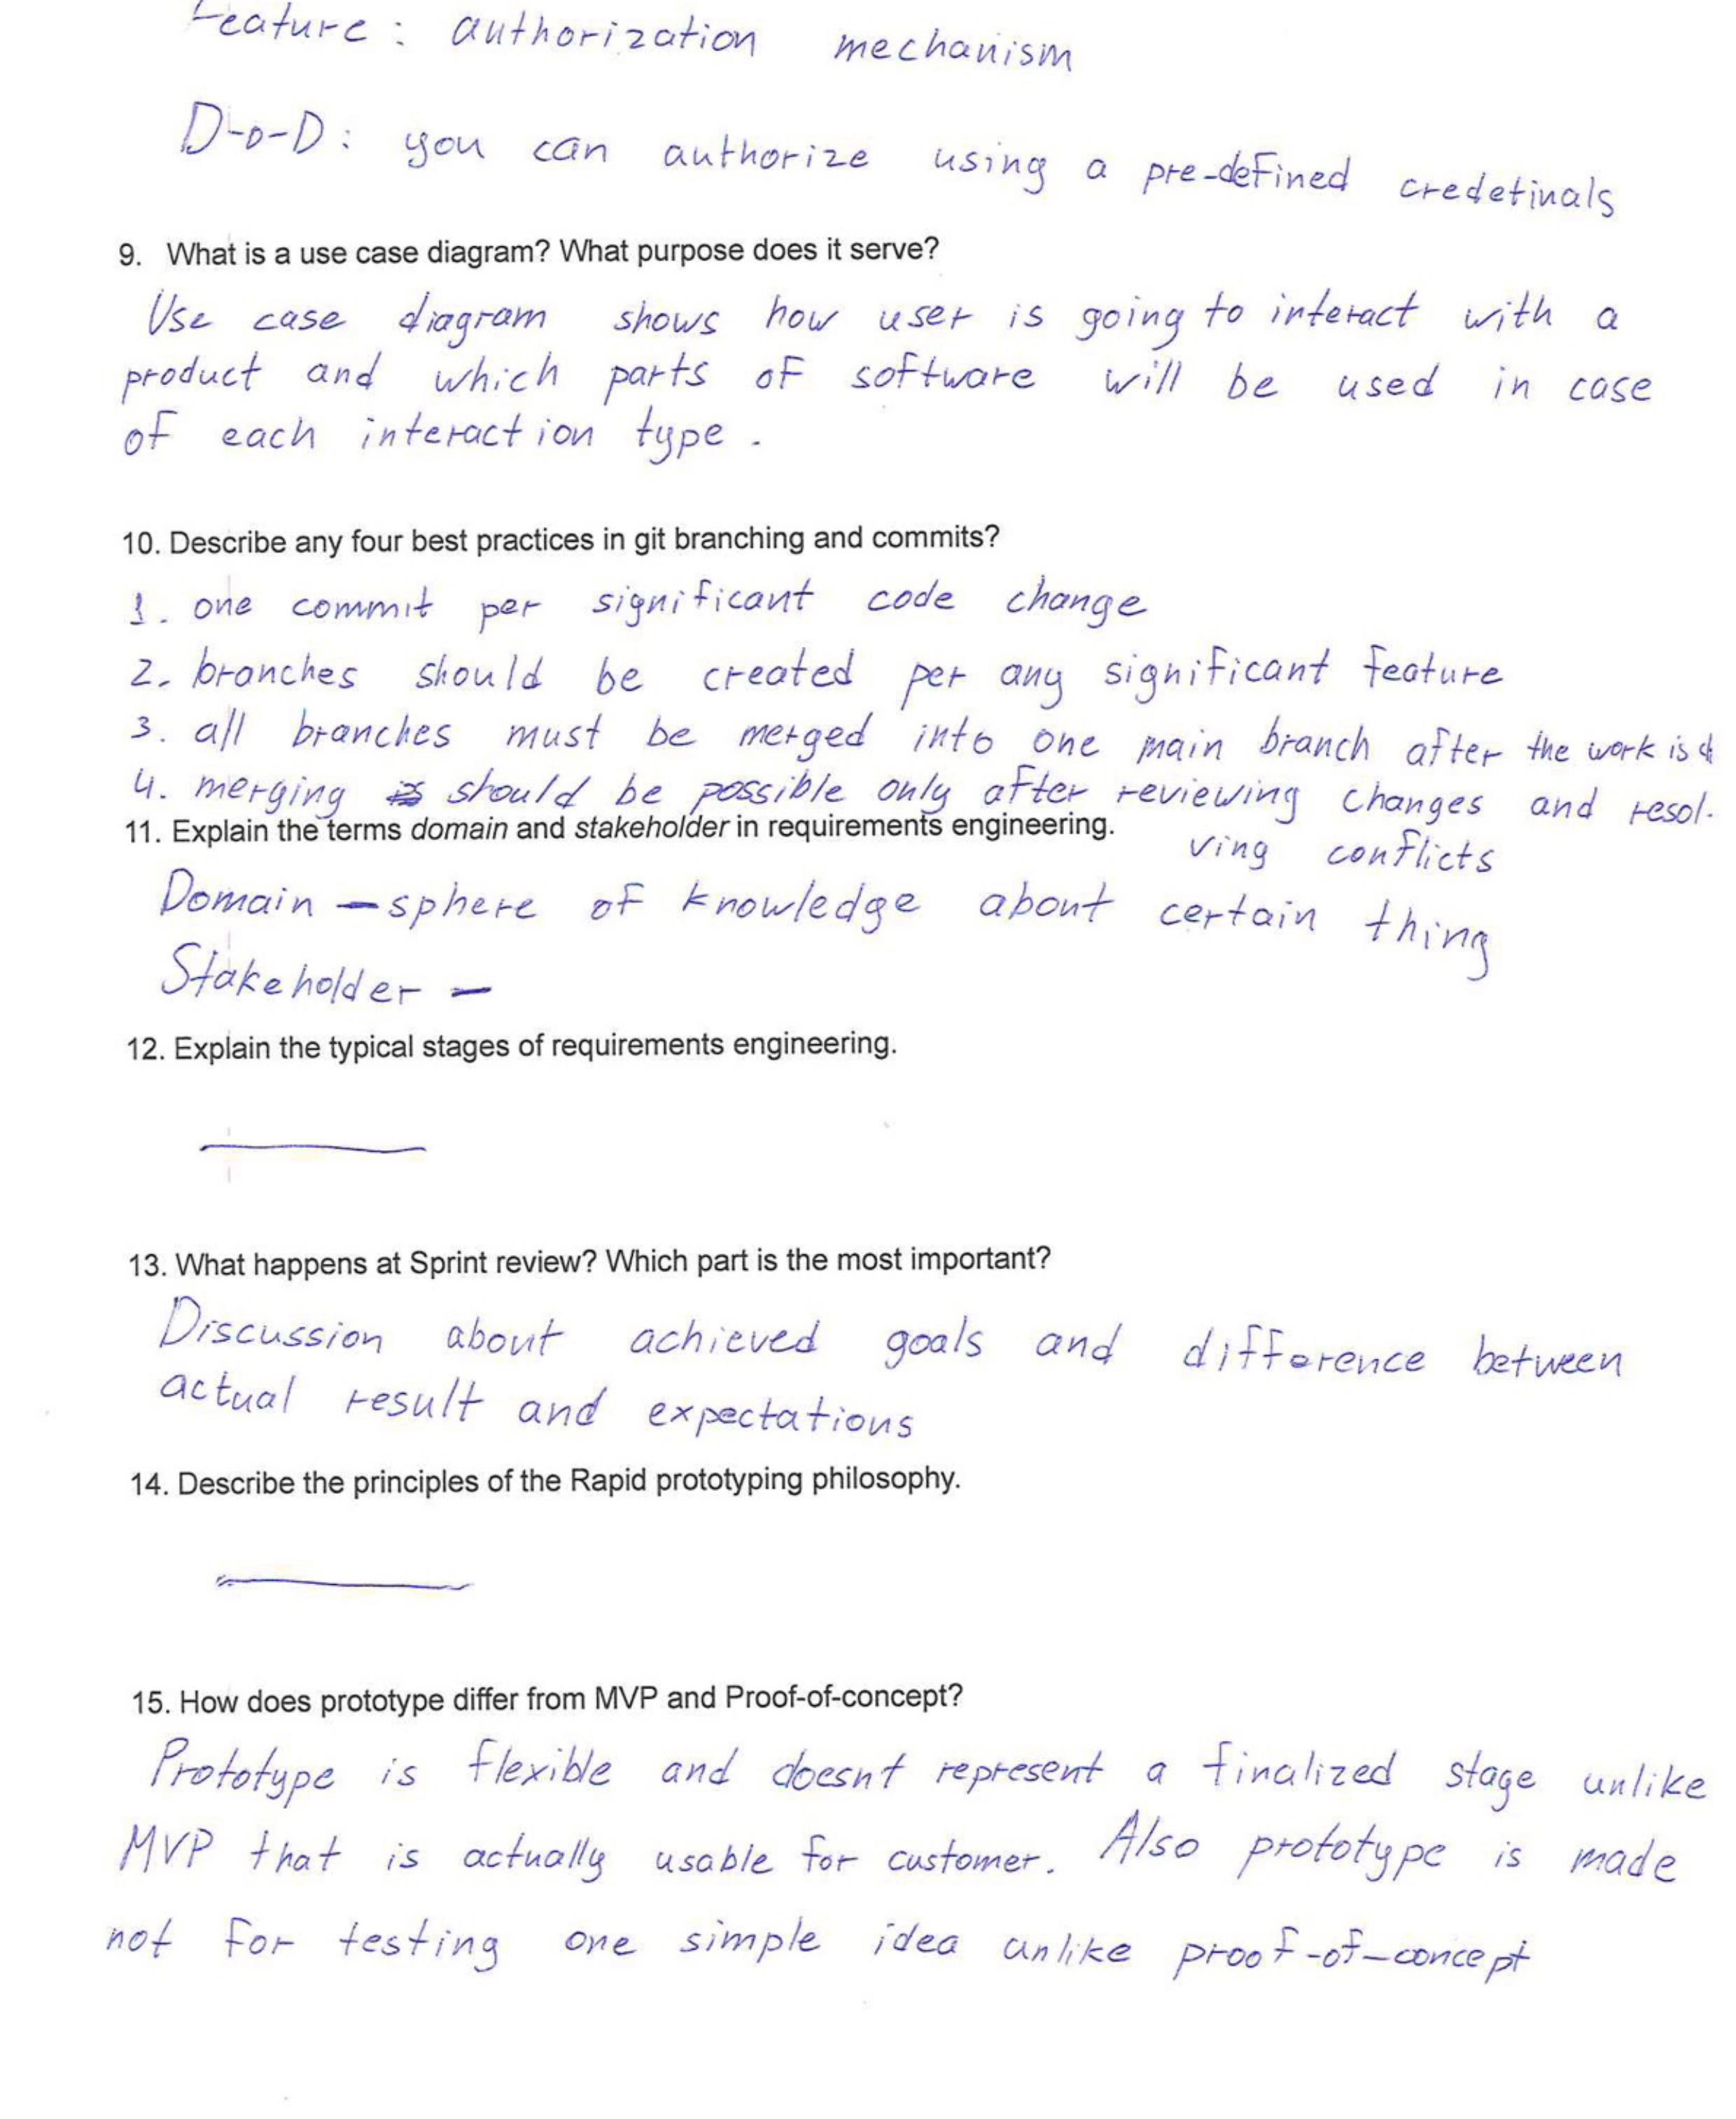 Feature: authorization mechanism
D-o-D: you can authorize using a pre-defined credetinals
9. What is a use case diagram? What purpose does it serve?
Use case diagram shows how user is going to interact with a
product and which parts of software will be used in case
of each interaction type.
10. Describe any four best practices in git branching and commits?
1. one commit per significant code change
2. branches should be created per any significant feature
3. all branches must be merged into one main branch after the work is d
4. merging should be possible only after reviewing changes and resol-
11. Explain the terms domain and stakeholder in requirements engineering.
ving conflicts
Domain - sphere of knowledge about certain thing
Stakeholder -
12. Explain the typical stages of requirements engineering.
13. What happens at Sprint review? Which part is the most important?
Discussion about achieved goals and difference between
actual result and expectations
14. Describe the principles of the Rapid prototyping philosophy.
15. How does prototype differ from MVP and Proof-of-concept?
Prototype is flexible and doesnt represent a finalized stage unlike
MVP that is actually usable for customer. Also prototype is made
not for testing one simple idea unlike proof-of-concept